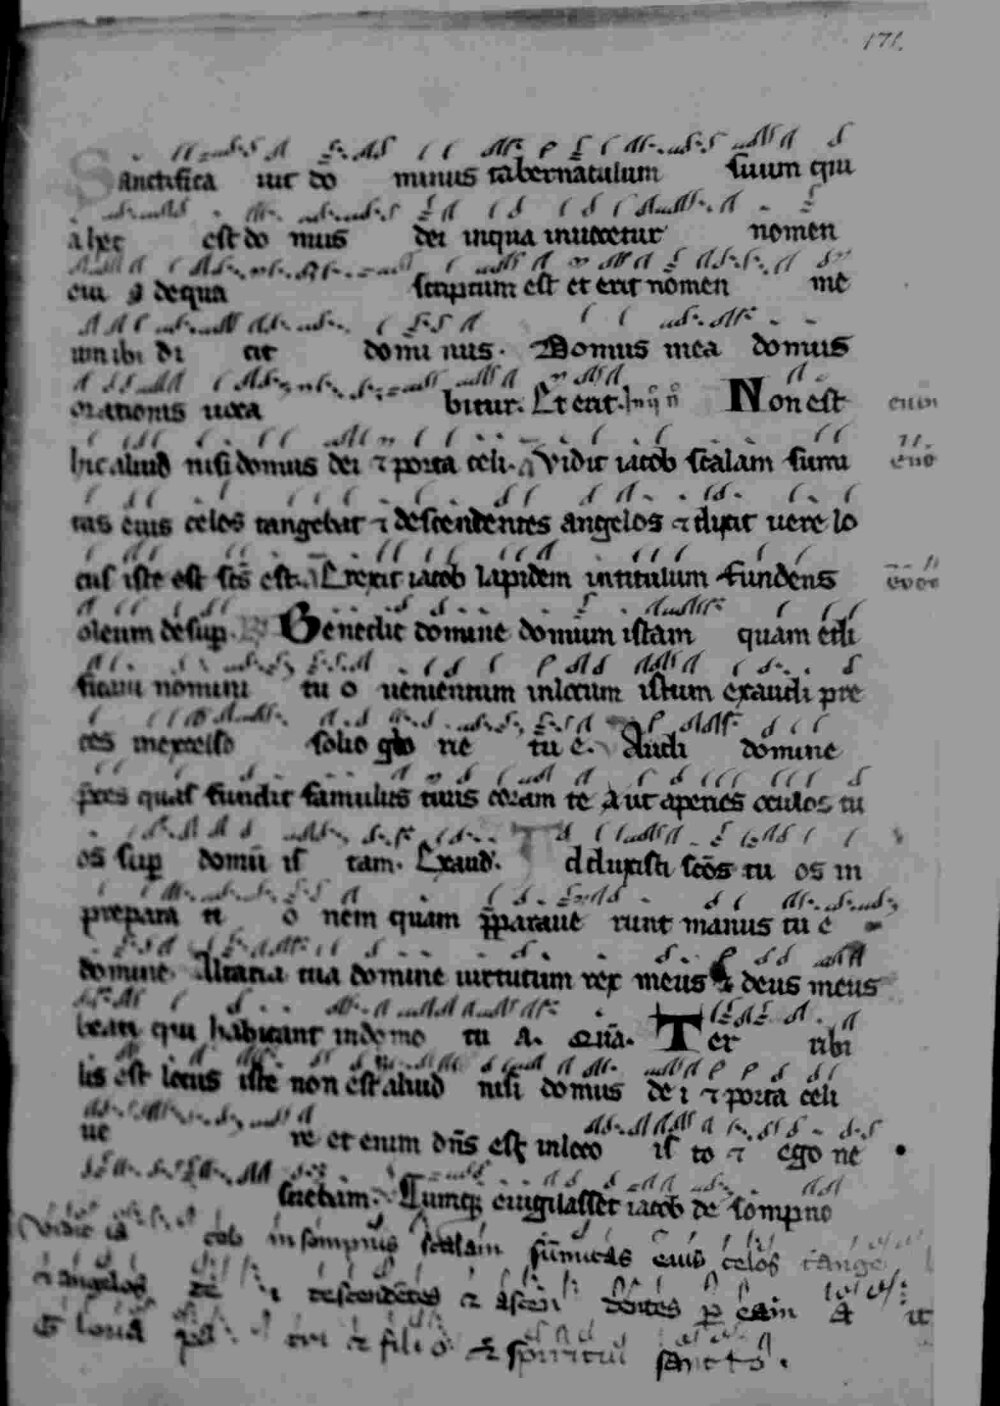 171.
Sanctifica uit do minus tabernaculum suum qui
a hec est do mus dei in qua inuocetur nomen
eiu s de qua scriptum est et erit nomen me
um ibi di cit domi nus. Domus mea domus
orationis uoca bitur. Et erit. Non est
hic aliud nisi domus dei ⁊ porta celi. Vidit iacob scalam summi
tas eius celos tangebat ⁊ descendentes angelos ⁊ dixit uere lo
cus iste est scs est. Erexit iacob lapidem in titulum fundens
oleum desup. Benedic domine domum istam quam edi
ficaui nomini tu o uenientium in locum istum exaudi pre
ces in excelso solio glo rie tu e. Audi domine
preces quas fundit famulus tuus coram te A ut aperies oculos tu
os sup domū is tam. Exaud. Adduxisti scōs tu os in
prepara ti o nem quam pparaue runt manus tu e
domine Altaria tua domine uirtutum rex meus ⁊ deus meus
beati qui habitant in domo tu a. Terribi
lis est locus iste non est aliud nisi domus de i ⁊ porta celi
ue re et enim dn̄s est in loco is to ⁊ ego ne
sciebam. Cumq; euigilasset iacob de sompno
Vidit ia cob in sompnis scalam sūmitas eius celos tange
⁊ angelos de i descendētes ⁊ ascen dentes p eam
Gloria pa tri ⁊ fili o ⁊ spiritui sancto.